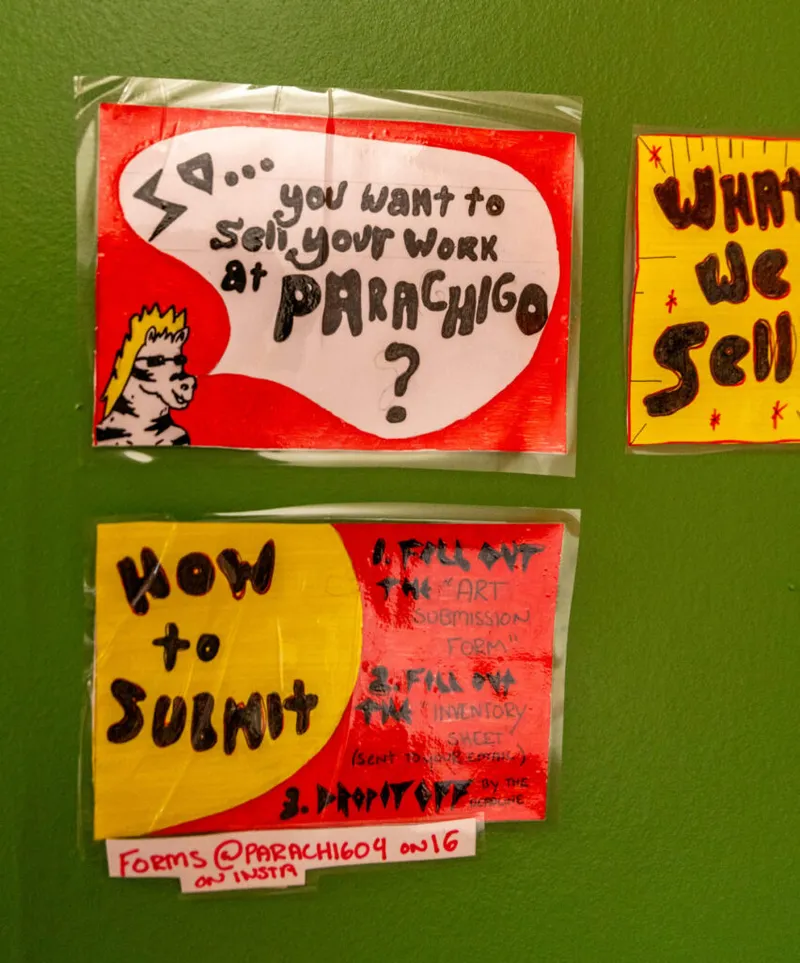 So...
you want to
sell your work
at PARACHIGO
?
WHAT
We
Sell
HOW
to
SUBMIT
1. FILL OUT
THE "ART
SUBMISSION
FORM"
2. FILL OUT
THE "INVENTORY
SHEET"
(SENT TO YOUR EMAIL)
3. DROP IT OFF BY THE
DEADLINE
FORMS @PARACHIGO4 ON IG
ON INSTA